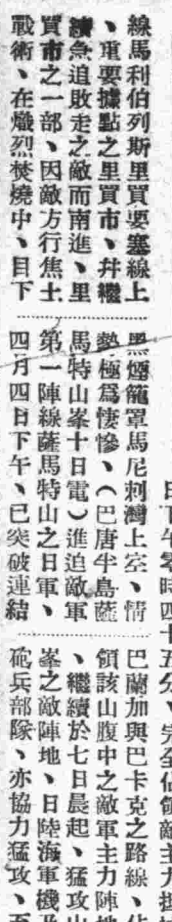 線馬利伯列斯里買要塞線上
、重要據點之里買市、幷繼
續急追敗走之敵而南進、里
買市之一部、因敵方行焦土
戰術、在熾烈焚燒中、目下
日下午零時四十
黑煙籠罩馬尼刺灣上空、情
勢極爲悽慘、（巴唐半島薩
馬特山峯十日電）進迫敵軍
第一陣線薩馬特山之日軍、
四月四日下午、已突破連結
五分、完全佔領敵主力
巴蘭加與巴卡克之路線、佔
領該山腹中之敵軍主力陣地
、繼續於七日晨起、猛攻山
峯之敵陣地、日陸海軍機及
砲兵部隊、亦協力猛攻、至